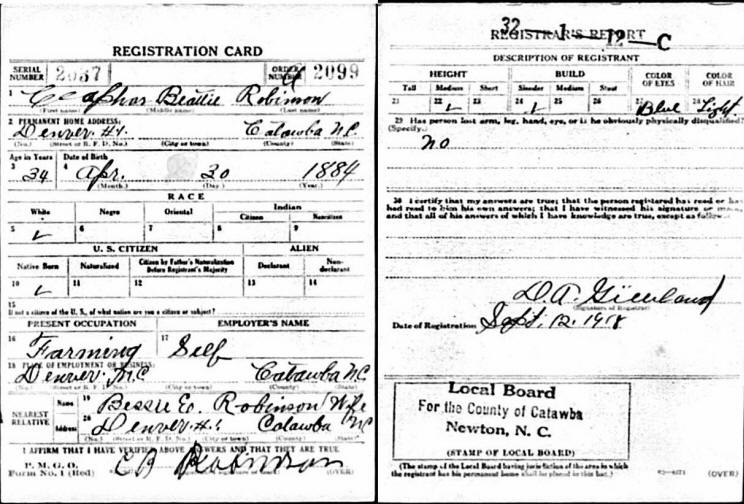 REGISTRATION CARD
SERIAL NUMBER 2037
ORDER NUMBER 2099
1 Beattie Robinson
(First name) (Middle name) (Last name)
2 PERMANENT HOME ADDRESS:
Denver #1 Catawba N.C.
(No.) (Street or R. F. D. No.) (City or town) (County) (State)
Age in Years Date of Birth
3 34 4 Apr. 30 1884
(Month.) (Day.) (Year.)
RACE
White Negro Oriental Indian
Citizen Noncitizen
5 ✓ 6 7 8 9
U. S. CITIZEN ALIEN
Native Born Naturalized Citizen by Father's Naturalization Before Registrant's Majority Declarant Non-declarant
10 ✓ 11 12 13 14
15
If not a citizen of the U. S., of what nation are you a citizen or subject?
PRESENT OCCUPATION EMPLOYER'S NAME
16 Farming 17 Self
18 PLACE OF EMPLOYMENT OR BUSINESS:
Denver N.C Catawba N.C.
(No.) (Street or R. F. D. No.) (City or town) (County) (State)
NEAREST RELATIVE
Name 19 Bessie E. Robinson/Wife
Address 20 Denver #1 Catawba N.C
(No.) (Street or R. F. D. No.) (City or town) (County) (State)
I AFFIRM THAT I HAVE VERIFIED ABOVE ANSWERS AND THAT THEY ARE TRUE
P. M. G. O.
Form No. 1 (Red) C B Robinson (OVER)
32 1 12 C
REGISTRAR'S REPORT
DESCRIPTION OF REGISTRANT
HEIGHT BUILD COLOR OF EYES COLOR OF HAIR
Tall Medium Short Slender Medium Stout
21 22 ✓ 23 24 ✓ 25 26 27 Blue 28 Light
29 Has person lost arm, leg, hand, eye, or is he obviously physically disqualified?
(Specify.)
no
30 I certify that my answers are true; that the person registered has read or has
had read to him his own answers; that I have witnessed his signature or mark,
and that all of his answers of which I have knowledge are true, except as follows:
D. A.
(Signature of Registrar)
Date of Registration Sept. 12. 1918
Local Board
For the County of Catawba
Newton, N. C.
(STAMP OF LOCAL BOARD)
(The stamp of the Local Board having jurisdiction of the area in which
the registrant has his permanent home shall be placed in this box.)
(OVER)